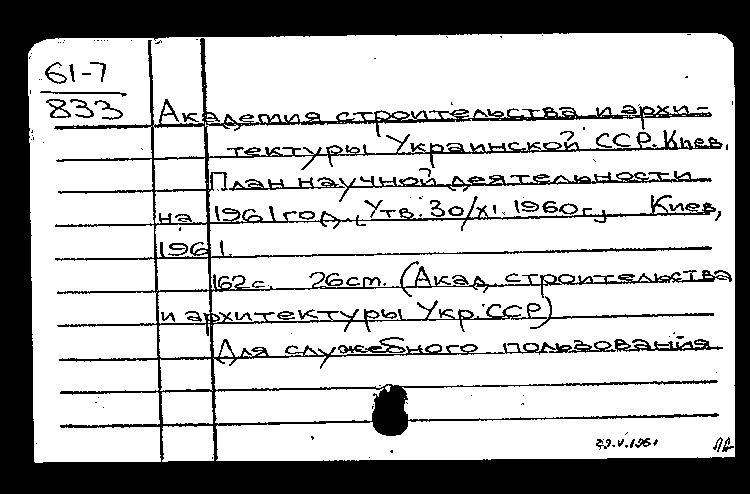 61-7
833
Академия строительства и архи-
тектуры Украинской ССР. Киев.
План научной деятельности
на 1961 год. [Утв. 30/XI. 1960г.] Киев,
1961.
162 с. 26см. (Акад. строительства
и архитектуры Укр. ССР)
Для служебного пользования
29.V.1961